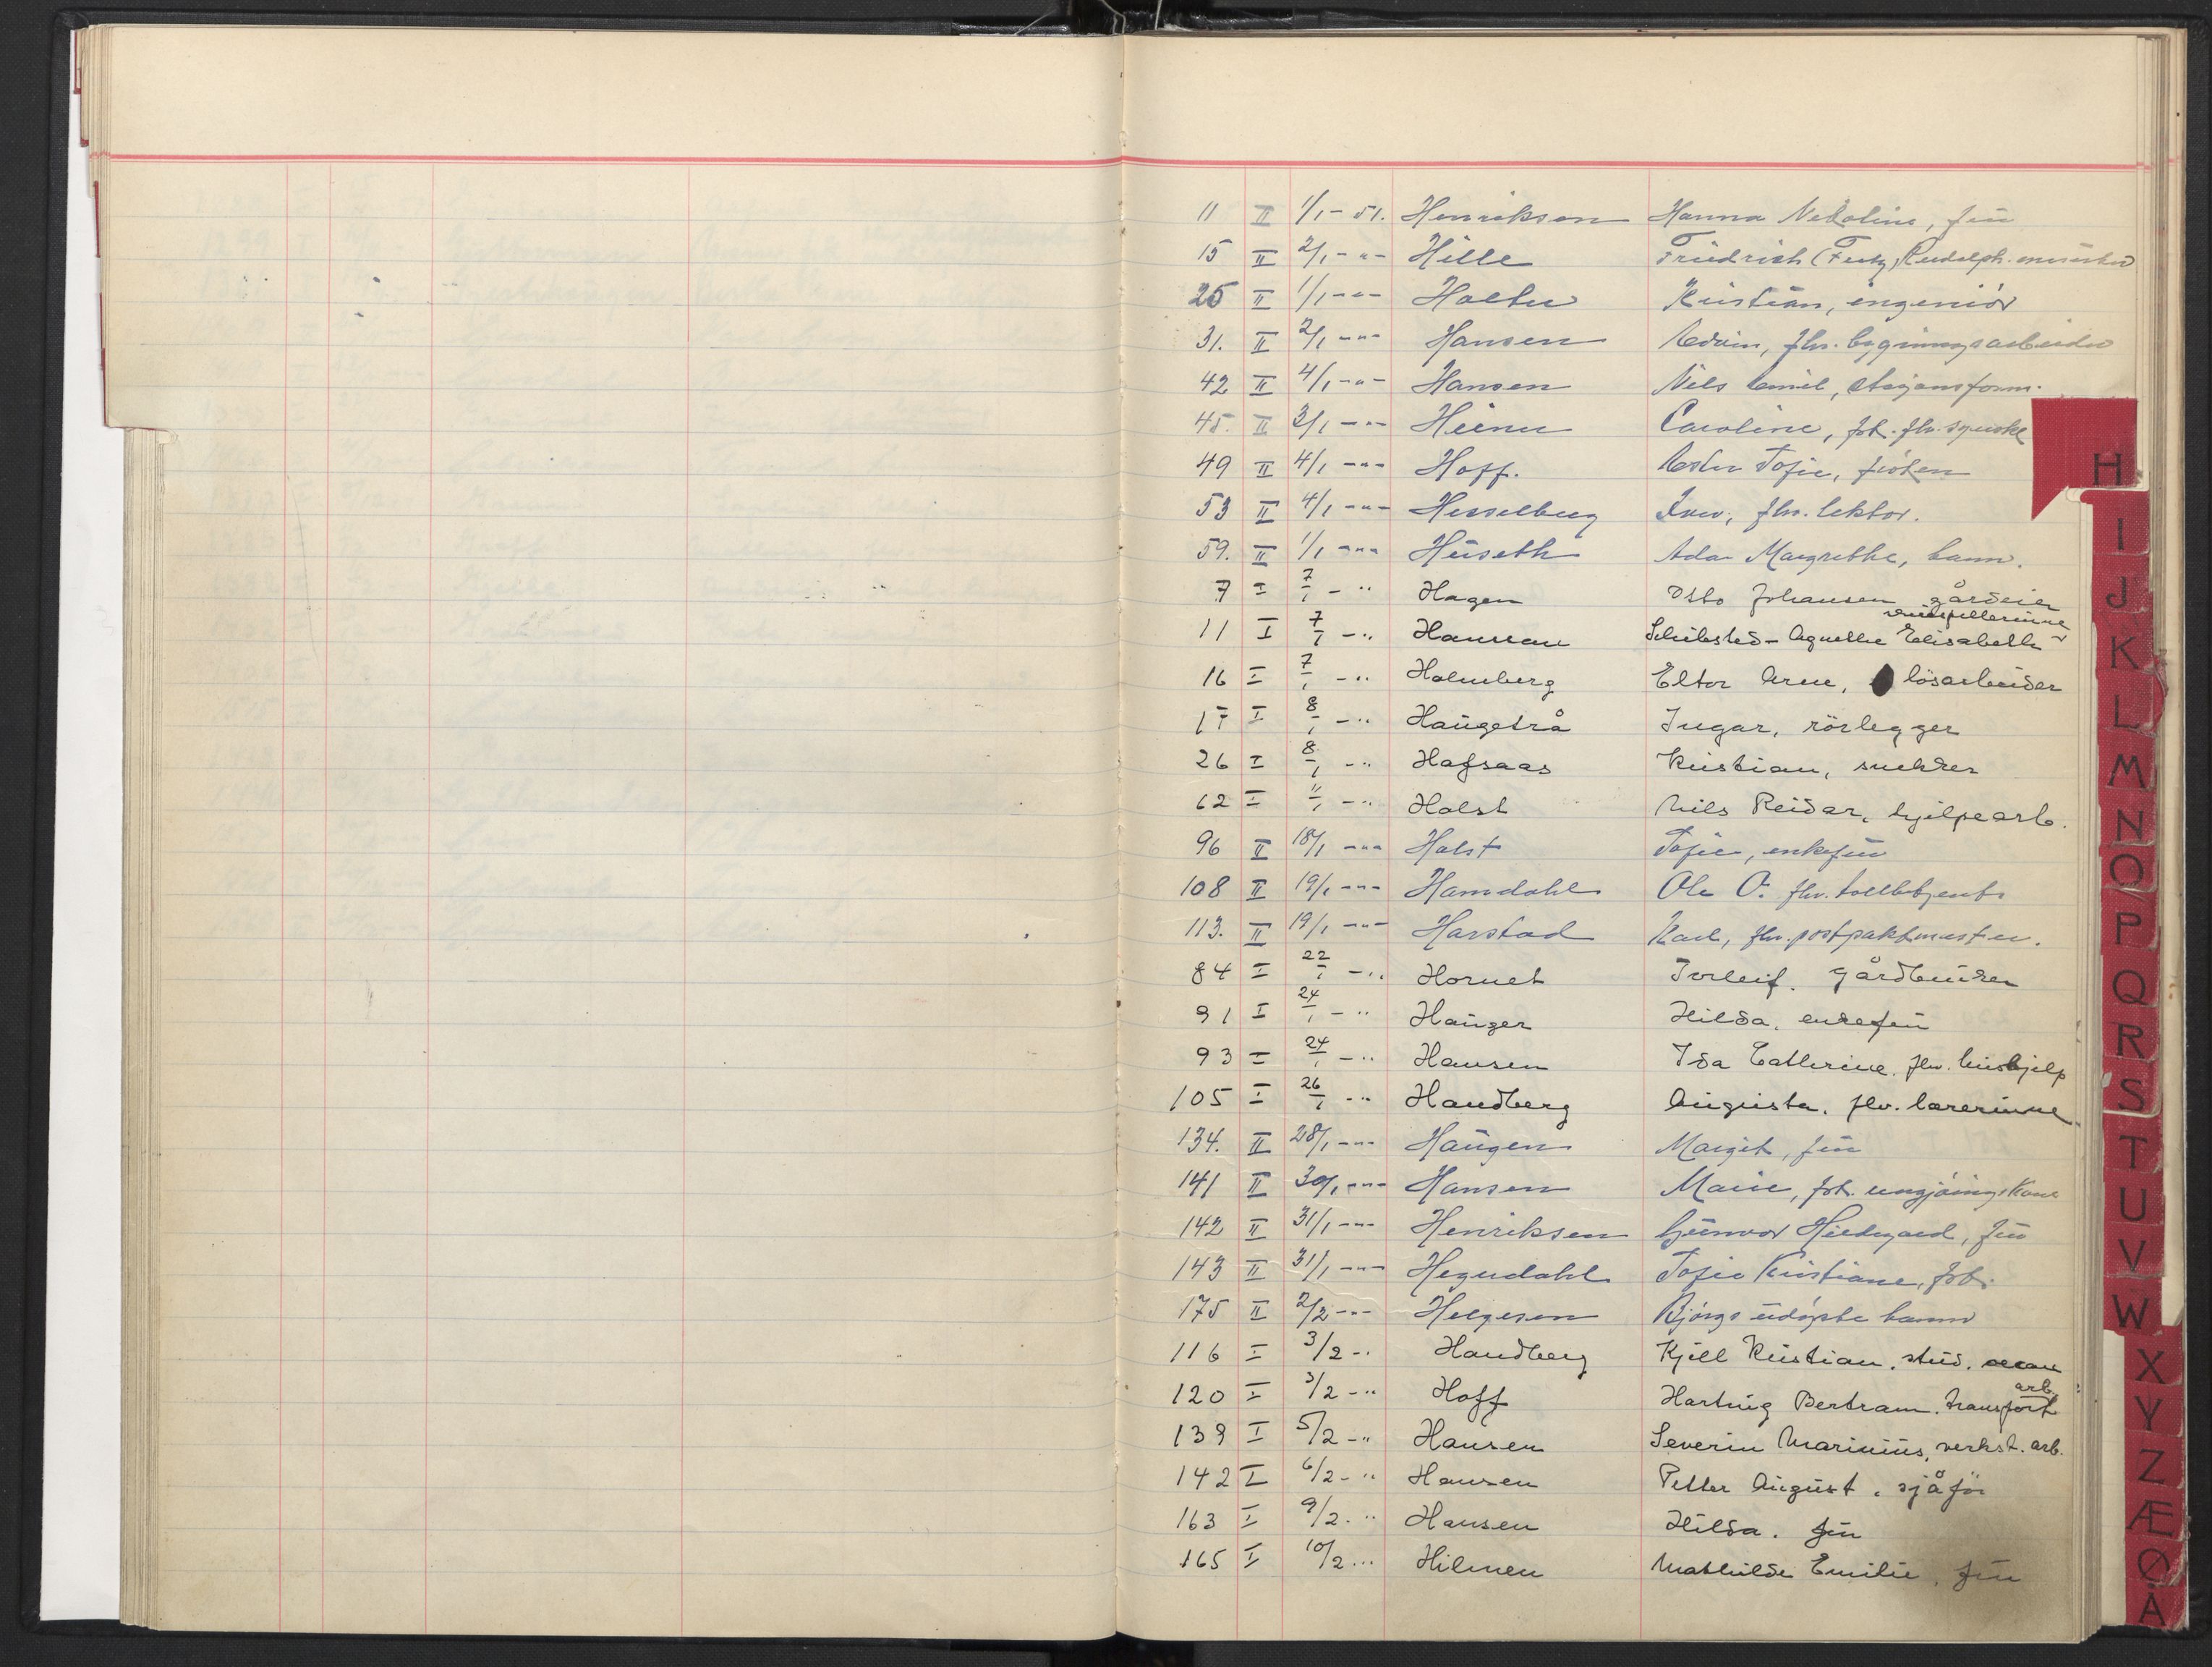 11 II 1/1 - 51. Henriksen Hanna Nekoline, frü
15 II 2/1 - " - Hille Friedrich (Fritz) Rudolph.
25 II 1/1 - " - Holter Kristian, ingeniör
31. II 2/1 - " - Hansen Edvin, fhv. bygningsarbeider
42 II 4/1 - " - Hansen Nils Emil, stasjonsform.
45. II 3/1 - " - Caroline, frk. fhv. syerske
49 II 4/1 - " - Hoff. Ester Sofie, fröken
53 II 4/1 - " - Hesselberg Iver, fhv. lektor.
59. II 1/1 - " - Hüseth Ada Margrethe, barn.
7 I 7/1 - " Hagen Otto Johansen gårdeier
skuespillerinne
11 I 7/1 - " Hanssen Schibsted - Agnethe Elisabeth
16 I 7/1 - " Holmberg Eltor Arne, lösarbeider
17 I 8/1 - " Haugetrå Ingar, rörlegger
26 I 8/1 - " Hafsaas Kristian, snekker
62 I 11/1 - " Holst Nils Reidar, hjelpearb.
96 II 18/1 - " - Holst Sofie, enkefrü
108 II 19/1 - " - Hamdahl Ole O. fhv. tollbetjent
113. II 19/1 - " - Harstad Karl, fhv. postpakkmester.
84 I 22/1 - " Hornet Torleif. gårdbrüker
91 I 24/1 - " Haüger Hilda. enkefrü
93 I 24/1 - " Hansen Ida Cathrine. fhv. hüshjelp
105 I 26/1 - " Handberg Aügüsta. fhv. lærerinne
134. II 28/1 - " - Haügen Margit, frü
141 II 30/1 - " - Hansen Marie, frk. rengjöringskone
142 II 31/1 - " - Henriksen Günvor Hildegard, frü
143 II 31/1 - " - Hegerdahl Sofie Kristiane, frk.
175 II 2/2 - " - Helgesen Bjørgs üdöpte barn
116 I 3/2 - " Handberg Kjell Kristian. stüd.
arb.
120 I 3/2 - " Hoff Hartvig Bertram. transport
139 I 5/2 - " Hansen Severin Mariniüs, verkst. arb.
142 I 6/2 - " Hansen Petter Aügüst. sjåför
163 I 9/2 - " Hansen Hilda. frü
165 I 10/2 - " Hilmen Mathilde Emilie, frü
H
I
J
K
L
M
N
O
P
Q
R
S
T
U
V
W
X
Y
Z
Æ
Ø
Å